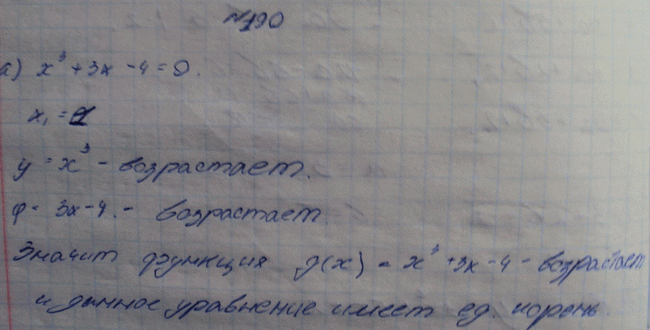 №190
а) x³ + 3x - 4 = 0.
x₁ = 1
y = x³ - возрастает.
φ = 3x - 4. - возрастает.
Значит функция g(x) = x³ + 3x - 4 - возрастает
и данное уравнение имеет ед. корень.